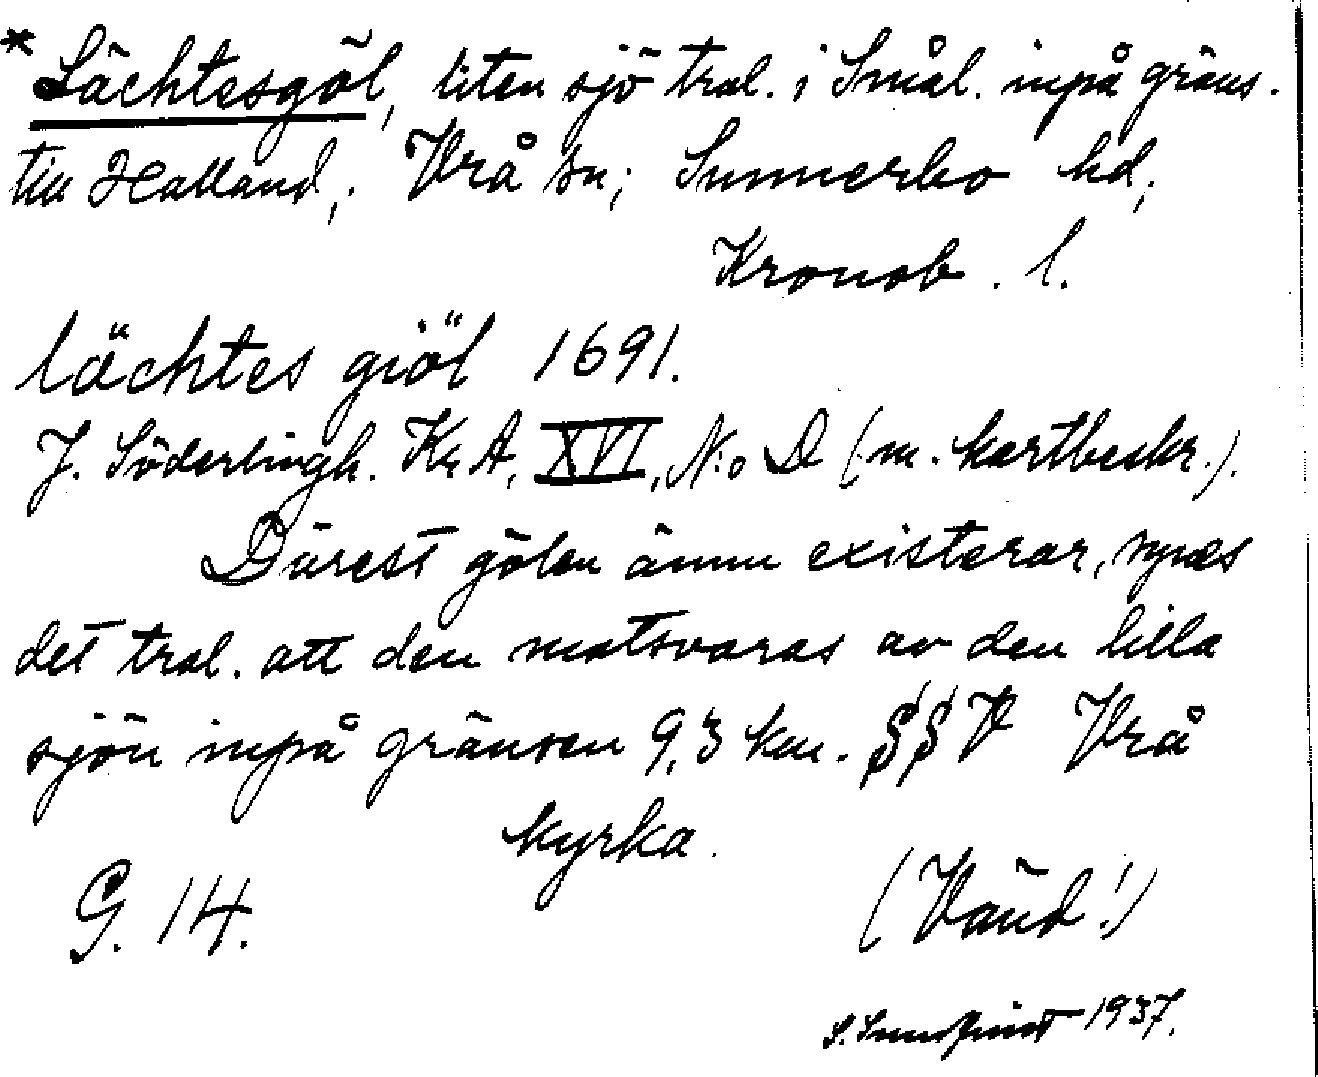 * Lächtesgöl, liten sjö tral. i Smål. inpå gräns.
till Halland; Vrå sn; Sunnerbo hd;
Kronob. l.
lächtes giöl 1691.
J. Söderlingh. Kr A, XVI, N:o D (m. kartbeskr.).
Därest gölen ännu existerar, synes
det tral. att den motsvaras av den lilla
sjön inpå gränsen 9,3 km. SSV Vrå
kyrka.
G. 14. (Vänd!)
S. Sundquist 1937.